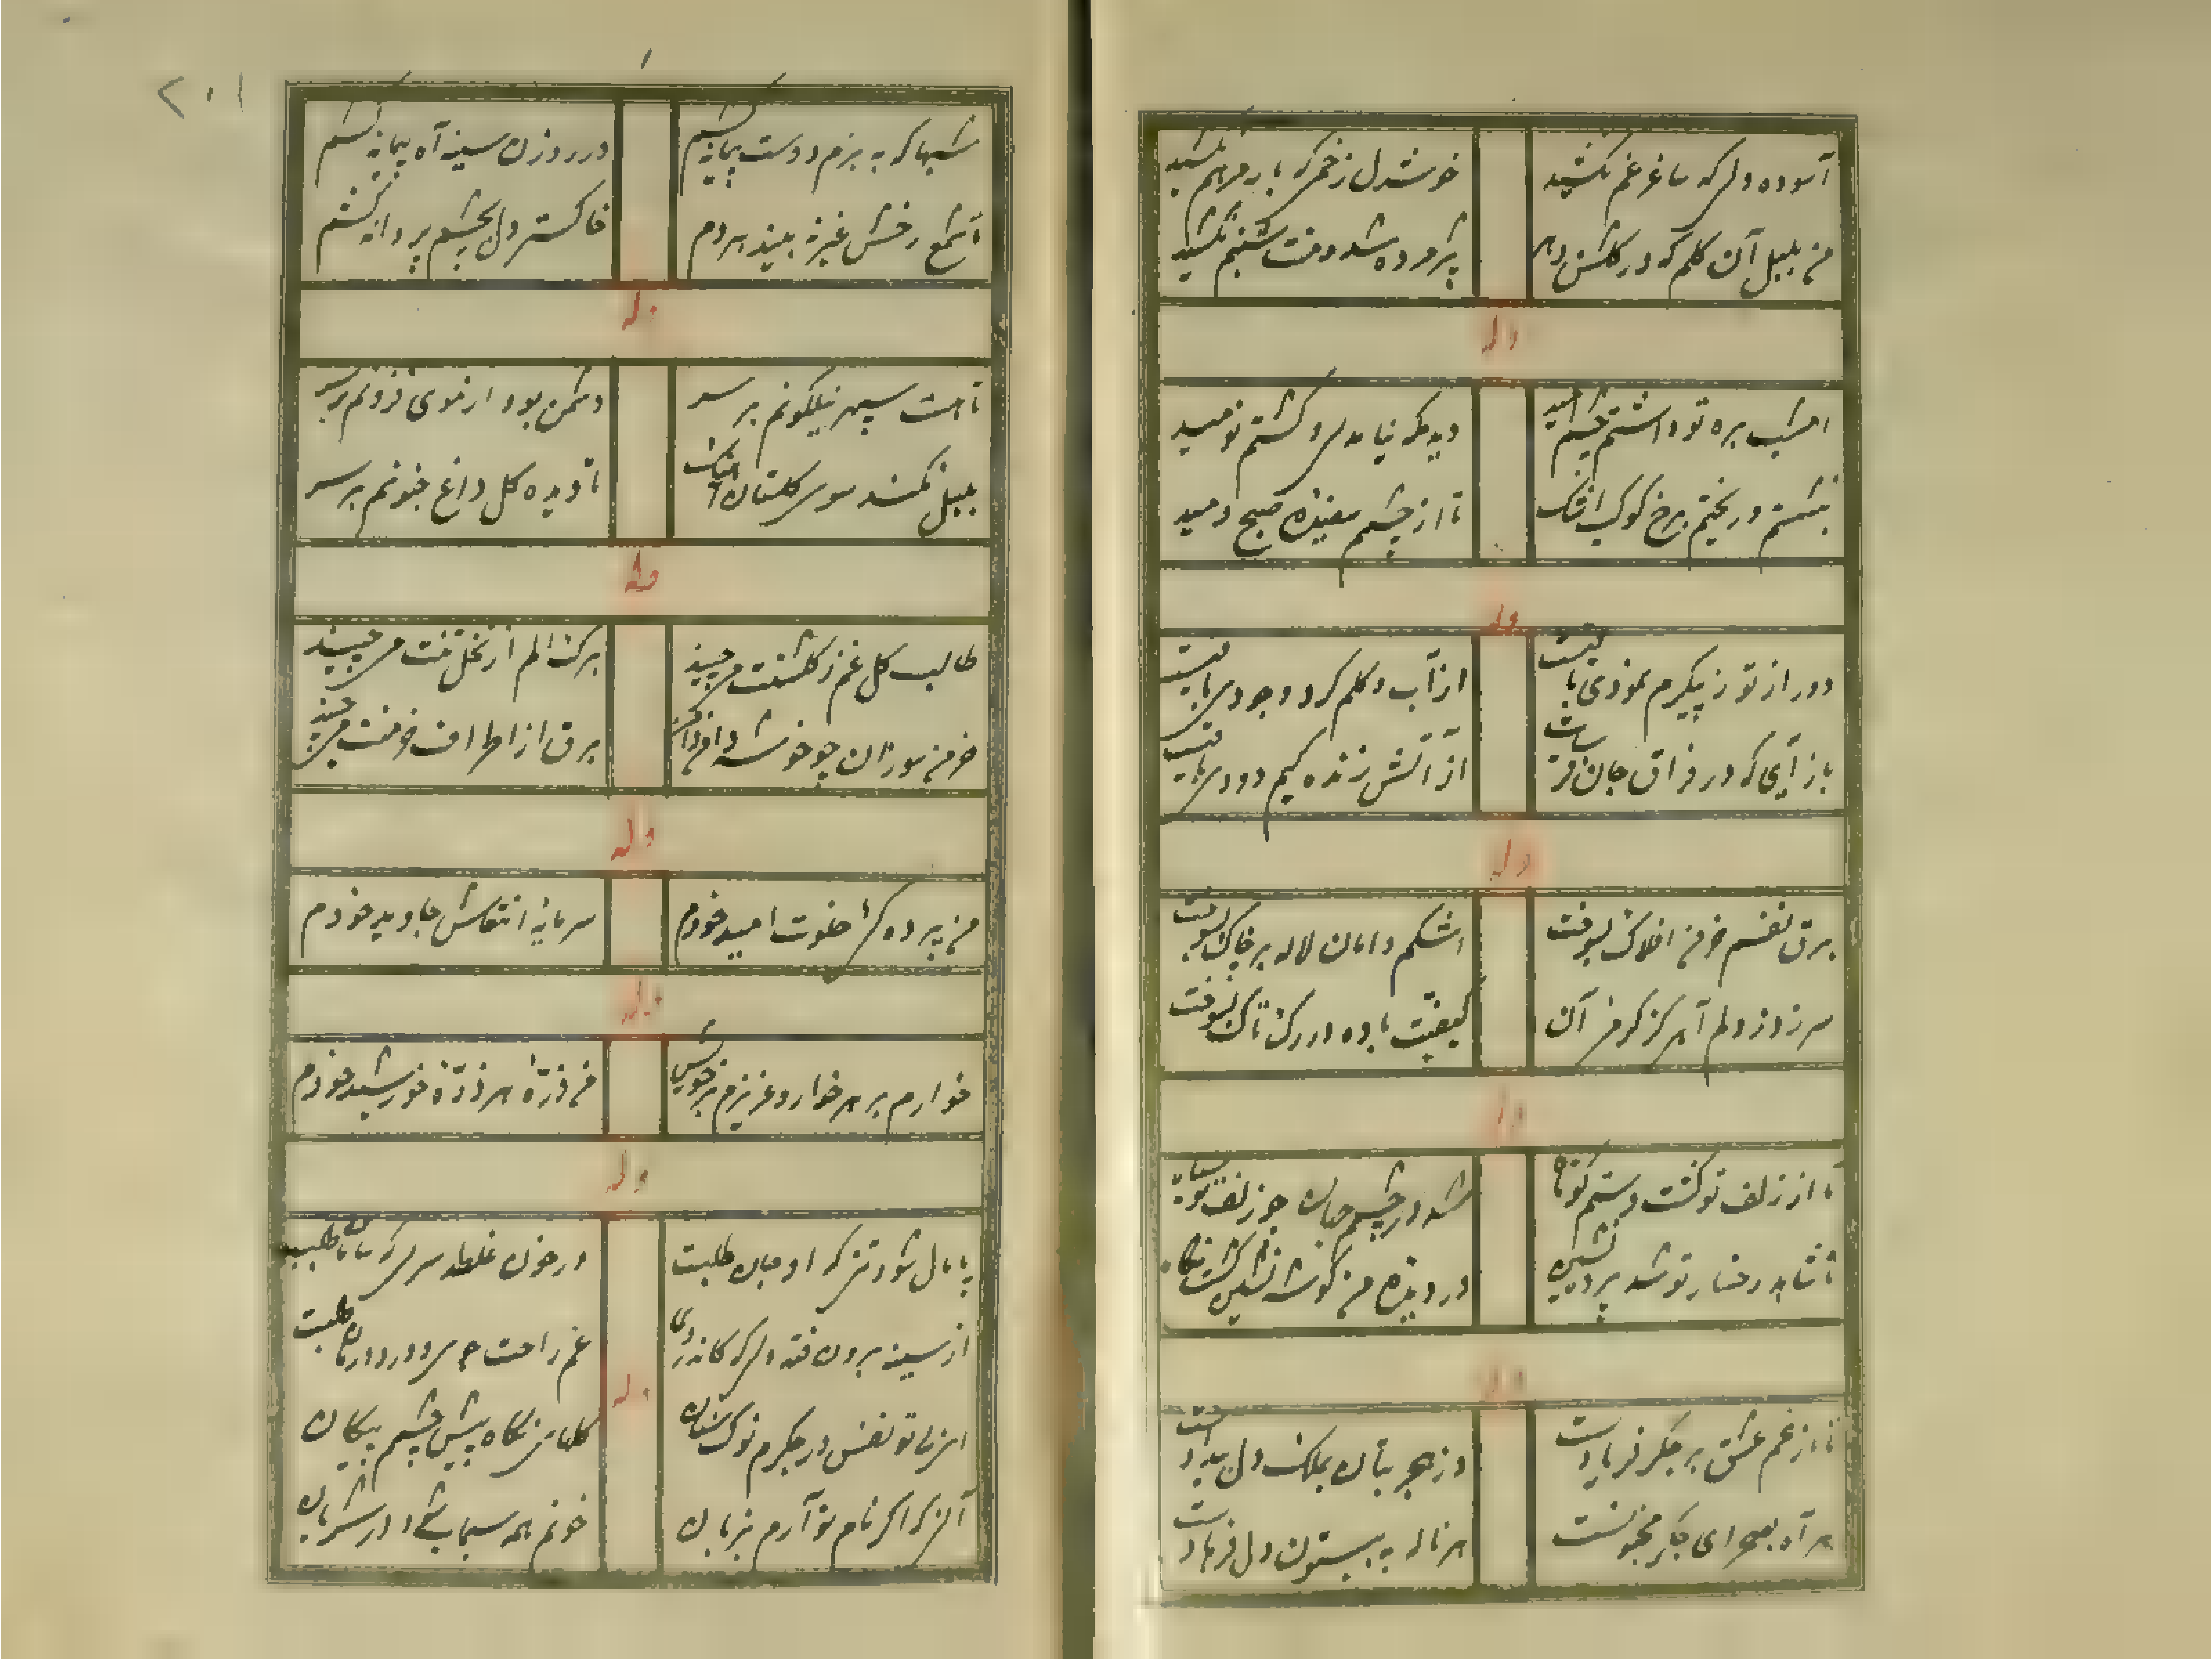 آسوده دلی که ساغر غم نکشید
خوشدل زخمی که بار مرهم نکشید
من بلبل آن گلم که در گلشن دهر
پژمرده شد و منت شبنم نکشید
وله
امشب بره تو داشتم چشم امید
دیدم که نیامدی و گشتم نومید
بنشستم و ریختم برخ کوکب اشک
تا از چشمم سفیده صبح دمید
وله
دور از تو ز پیکرم نمودی باقیست
از آب و گلم گرد وجودی باقیست
باز آی که در فراق جان
از آتش زنده گیم دودی باقیست
وله
برق نفسم خرمن افلاک بسوخت
اشکم دامان لاله بر خاک بسوخت
سر زد ز دلم آهی کز گرمی آن
کیفیت باده در رگ تاک بسوخت
وله
تا از زلف تو گشت دستم کوتاه
شد در چشمم جهان چو زلف تو سیاه
تا شاهد رخسار تو شد پرده نشین
در دیده من گوشه نشین گشت نگاه
وله
تا از غم عشق بر جگر فریاد است
وز هجر بتان بملک دل بیداد است
هر آه بصحرای جگر مجنونست
هر ناله به بیستون دل فرهاد است
۲۰۱
شبها که به بزم دوست پیمانه کشم
در روزن سینه آه پیمانه کشم
تا شمع رخش غیر نبیند هر دم
خاکستر دل بچشم پروانه کشم
وله
تا هست سپهر نیلگونم بر سر
دشمن بود از موی فزونم بر سر
بلبل نکند سوی گلستان آهنگ
تا دیده گل داغ جنونم بر سر
وله
طالب گل غم ز گلشنت می چیند
برگ الم از نخل تنت می چیند
خرمن سوزان چو خوشه
برق از اطراف خرمنت می چیند
وله
من پرده گی خلوت امید خودم
سرمایه انتعاش جاوید خودم
وله
خوارم بر هر خوار و عزیزم بر خویش
من ذره هر ذره خورشید خودم
وله
پامال شود تنی که او جان طلبست
در خون غلطد سری که سامان طلبست
از سینه برون فتد دلی کاندر وی
غم راحت جوی و درد درمان طلبست
وله
ای بی تو نفس در جگرم نوک سنان
گلهای نگاه پیش چشمم پیکان
آنم که اگر نام تو آرم بزبان
خونم همه سیماب شود در شریان